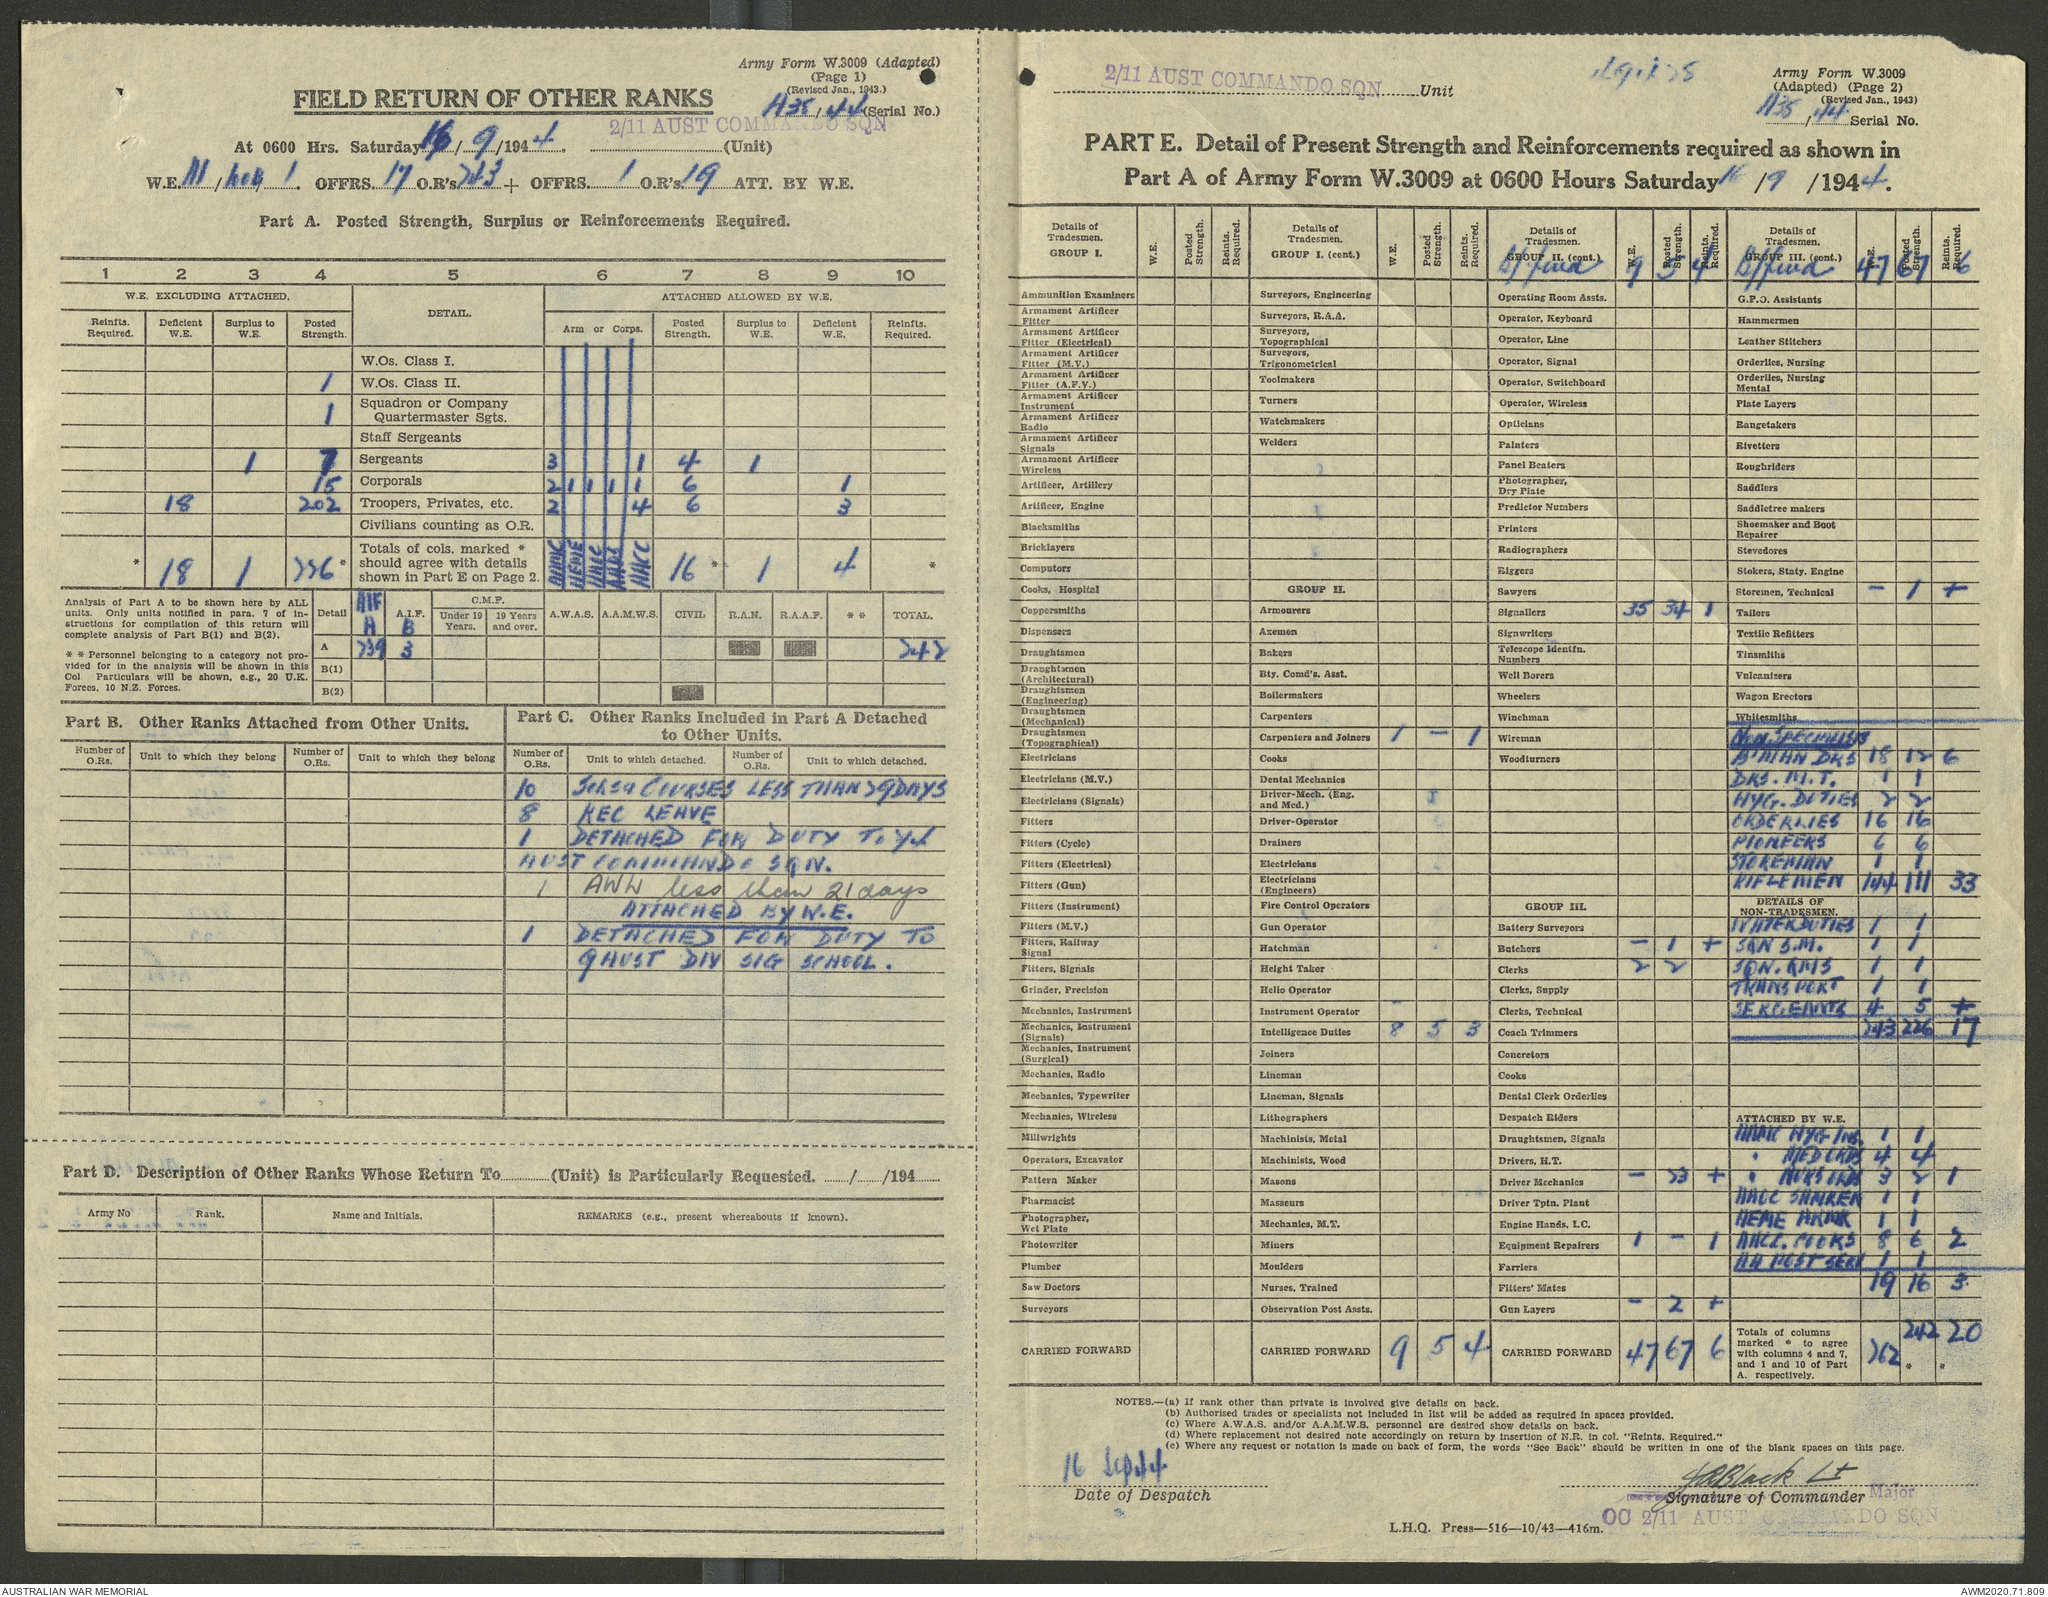 Army Form W.3009 (Adapted)
(Page 1)
(Revised Jan., 1943.)
FIELD RETURN OF OTHER RANKS
A35/44 (Serial No.)
2/11 AUST COMMANDO SQN
At 0600 Hrs. Saturday 16/9/1944. (Unit)
W.E. III/ /1. OFFRS. 17 O.R's 243 + OFFRS. 1 O.R's 19 ATT. BY W.E.
Part A. Posted Strength, Surplus or Reinforcements Required.
1 2 3 4 5 6 7 8 9 10
W.E. EXCLUDING ATTACHED. DETAIL. ATTACHED ALLOWED BY W.E.
Reinfts. Required. Deficient W.E. Surplus to W.E. Posted Strength. Arm or Corps. Posted Strength. Surplus to W.E. Deficient W.E. Reinfts. Required.
W.Os. Class I.
1 W.Os. Class II.
1 Squadron or Company Quartermaster Sgts.
Staff Sergeants
1 7 Sergeants 3 1 4 1
15 Corporals 2 1 1 1 1 6 1
18 202 Troopers, Privates, etc. 2 4 6 3
Civilians counting as O.R.
* 18 1 226 * Totals of cols. marked * should agree with details shown in Part E on Page 2. AAMC AEME AACC AAPS AACC 16 * 1 4 *
Analysis of Part A to be shown here by ALL units. Only units notified in para. 7 of instructions for compilation of this return will complete analysis of Part B(1) and B(2).
* * Personnel belonging to a category not provided for in the analysis will be shown in this Col Particulars will be shown, e.g., 20 U.K. Forces, 10 N.Z. Forces.
Detail AIF A A.I.F. B C.M.F. Under 19 Years. 19 Years and over. A.W.A.S. A.A.M.W.S. CIVIL R.A.N. R.A.A.F. * * TOTAL.
A 239 3 242
B(1)
B(2)
Part B. Other Ranks Attached from Other Units.
Number of O.Rs. Unit to which they belong Number of O.Rs. Unit to which they belong
Part C. Other Ranks Included in Part A Detached to Other Units.
Number of O.Rs. Unit to which detached. Number of O.Rs. Unit to which detached.
10 COURSES LESS THAN 29 DAYS
8 REC LEAVE
1 DETACHED FOR DUTY TO
AUST COMMANDO SQN.
1 AWL less than 21 days
ATTACHED BY W.E.
1 DETACHED FOR DUTY TO
9 AUST DIV SIG SCHOOL.
Part D. Description of Other Ranks Whose Return To (Unit) is Particularly Requested. / /194
Army No Rank. Name and Initials. REMARKS (e.g., present whereabouts if known).
2/11 AUST COMMANDO SQN Unit
Army Form W.3009
(Adapted) (Page 2)
(Revised Jan., 1943)
A35/44 Serial No.
PART E. Detail of Present Strength and Reinforcements required as shown in
Part A of Army Form W.3009 at 0600 Hours Saturday 16/9/1944.
Details of Tradesmen. GROUP I. W.E. Posted Strength. Reints. Required.
Ammunition Examiners
Armament Artificer Fitter
Armament Artificer Fitter (Electrical)
Armament Artificer Fitter (M.V.)
Armament Artificer Fitter (A.F.V.)
Armament Artificer Instrument
Armament Artificer Radio
Armament Artificer Signals
Armament Artificer Wireless
Artificer, Artillery
Artificer, Engine
Blacksmiths
Bricklayers
Computors
Cooks, Hospital
Coppersmiths
Dispensers
Draughtsmen
Draughtsmen (Architectural)
Draughtsmen (Engineering)
Draughtsmen (Mechanical)
Draughtsmen (Topographical)
Electricians
Electricians (M.V.)
Electricians (Signals)
Fitters
Fitters (Cycle)
Fitters (Electrical)
Fitters (Gun)
Fitters (Instrument)
Fitters (M.V.)
Fitters, Railway Signal
Fitters, Signals
Grinder, Precision
Mechanics, Instrument
Mechanics, Instrument (Signals)
Mechanics, Instrument (Surgical)
Mechanics, Radio
Mechanics, Typewriter
Mechanics, Wireless
Millwrights
Operators, Excavator
Pattern Maker
Pharmacist
Photographer, Wet Plate
Photowriter
Plumber
Saw Doctors
Surveyors
CARRIED FORWARD
Details of Tradesmen. GROUP I. (cont.) W.E. Posted Strength. Reints. Required.
Surveyors, Engineering
Surveyors, R.A.A.
Surveyors, Topographical
Surveyors, Trigonometrical
Toolmakers
Turners
Watchmakers
Welders
GROUP II.
Armourers
Axemen
Bakers
Bty. Comd's. Asst.
Boilermakers
Carpenters
Carpenters and Joiners 1 - 1
Cooks
Dental Mechanics
Driver-Mech. (Eng. and Med.)
Driver-Operator
Drainers
Electricians
Electricians (Engineers)
Fire Control Operators
Gun Operator
Hatchman
Height Taker
Helio Operator
Instrument Operator
Intelligence Duties 8 5 3
Joiners
Lineman
Lineman, Signals
Lithographers
Machinists, Metal
Machinists, Wood
Masons
Masseurs
Mechanics, M.T.
Miners
Moulders
Nurses, Trained
Observation Post Assts.
CARRIED FORWARD 9 5 4
Details of Tradesmen. GROUP II. (cont.) W.E. Posted Strength. Reints. Required.
B/fwd 9 5 4
Operating Room Assts.
Operator, Keyboard
Operator, Line
Operator, Signal
Operator, Switchboard
Operator, Wireless
Opticians
Painters
Panel Beaters
Photographer, Dry Plate
Predictor Numbers
Printers
Radiographers
Riggers
Sawyers
Signallers 35 34 1
Signwriters
Telescope Identfn. Numbers
Well Borers
Wheelers
Winchman
Wireman
Woodturners
GROUP III.
Battery Surveyors
Butchers - 1 +
Clerks 2 2
Clerks, Supply
Clerks, Technical
Coach Trimmers
Concretors
Cooks
Dental Clerk Orderlies
Despatch Riders
Draughtsmen, Signals
Drivers, H.T.
Driver Mechanics - 23 +
Driver Tptn. Plant
Engine Hands, I.C.
Equipment Repairers 1 - 1
Farriers
Fitters' Mates
Gun Layers - 2 +
CARRIED FORWARD 47 67 6
Details of Tradesmen. GROUP III. (cont.) W.E. Posted Strength. Reints. Required.
B/fwd 47 67 6
G.P.O. Assistants
Hammermen
Leather Stitchers
Orderlies, Nursing
Orderlies, Nursing Mental
Plate Layers
Rangetakers
Rivetters
Roughriders
Saddlers
Saddletree makers
Shoemaker and Boot Repairer
Stevedores
Stokers, Staty. Engine
Storemen, Technical - 1 +
Tailors
Textile Refitters
Tinsmiths
Vulcanizers
Wagon Erectors
Whitesmiths
NON SPECIALISTS
BATMAN DRS 18 12 6
DRS. M.T. 1 1
HYG. DUTIES 2 2
ORDERLIES 16 16
PIONEERS 6 6
STOREMAN 1 1
RIFLEMEN 144 111 33
DETAILS OF NON-TRADESMEN.
WATER DUTIES 1 1
SQN S.M. 1 1
SQN. QMS 1 1
TRANSPORT 1 1
SERGEANTS 4 5 +
243 226 17
ATTACHED BY W.E.
AAMC HYG INS. 1 1
" MED ORDS 4 4
" NURS ORDS 3 2 1
AACC 1 1
AEME ARMR 1 1
AACC. COOKS 8 6 2
AA POST SERV 1 1
19 16 3
Totals of columns marked * to agree with columns 4 and 7, and 1 and 10 of Part A. respectively. 262 242 * 20 *
NOTES.—(a) If rank other than private is involved give details on back.
(b) Authorised trades or specialists not included in list will be added as required in spaces provided.
(c) Where A.W.A.S. and/or A.A.M.W.S. personnel are desired show details on back.
(d) Where replacement not desired note accordingly on return by insertion of N.R. in col. "Reints. Required."
(e) Where any request or notation is made on back of form, the words "See Back" should be written in one of the blank spaces on this page.
16 Sep 44
Date of Despatch
Black Lt
Signature of Commander Major
OC 2/11 AUST COMMANDO SQN
L.H.Q. Press—516—10/43—416m.
AUSTRALIAN WAR MEMORIAL
AWM2020.71.809